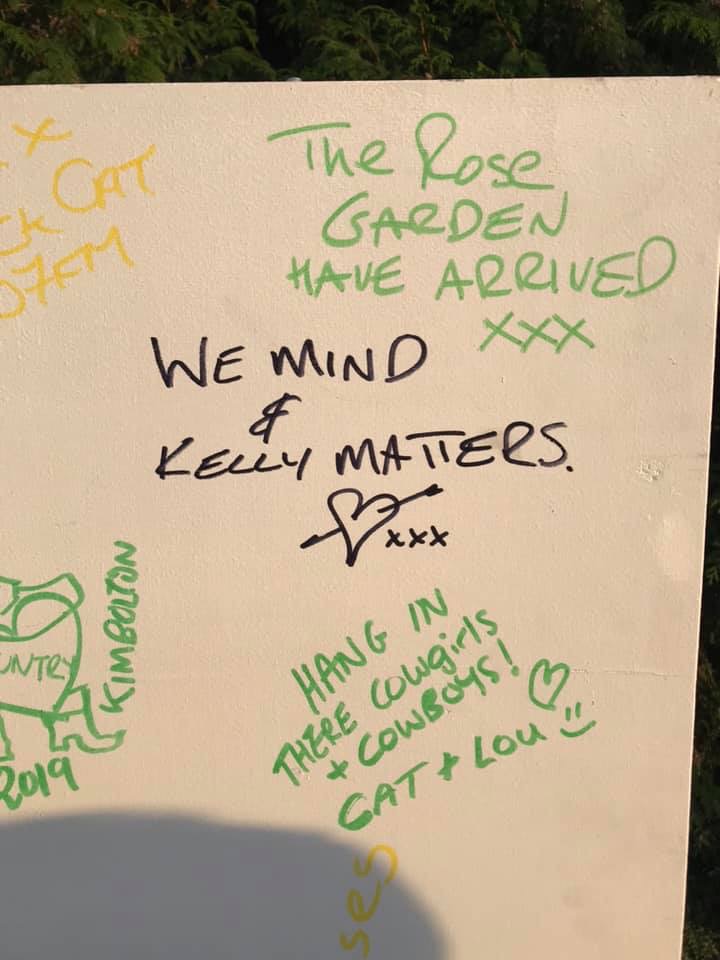 X
CAT
CK
07FM
The Rose
GARDEN
HAVE ARRIVED
XXX
WE MIND
&
KELLY MATTERS.
xxx
KIMBOLTON
UNTRY
2019
HANG IN
THERE COWgirls
+ COWBOYS!
CAT + LOU
ses